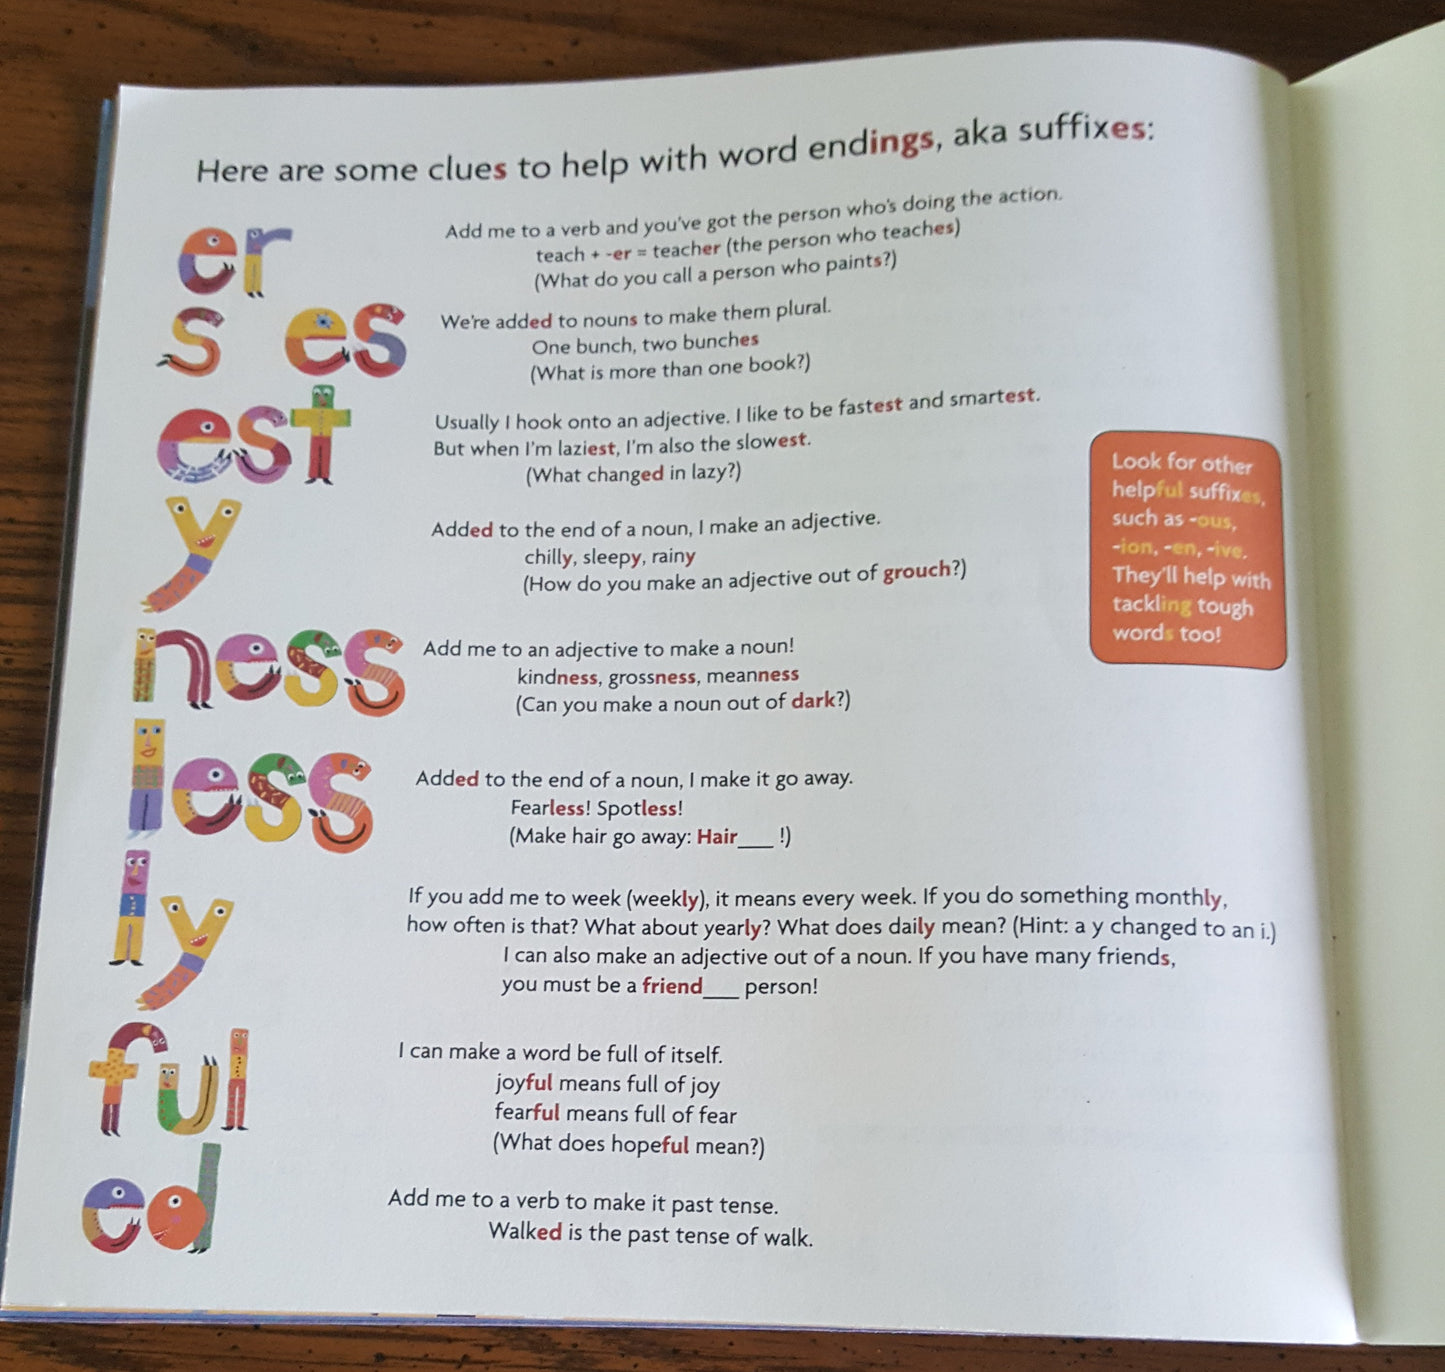 Here are some clues to help with word endings, aka suffixes:
er
Add me to a verb and you've got the person who's doing the action.
teach + -er = teacher (the person who teaches)
(What do you call a person who paints?)
s es
We're added to nouns to make them plural.
One bunch, two bunches
(What is more than one book?)
est
Usually I hook onto an adjective. I like to be fastest and smartest.
But when I'm laziest, I'm also the slowest.
(What changed in lazy?)
y
Added to the end of a noun, I make an adjective.
chilly, sleepy, rainy
(How do you make an adjective out of grouch?)
ness
Add me to an adjective to make a noun!
kindness, grossness, meanness
(Can you make a noun out of dark?)
less
Added to the end of a noun, I make it go away.
Fearless! Spotless!
(Make hair go away: Hair___ !)
ly
If you add me to week (weekly), it means every week. If you do something monthly,
how often is that? What about yearly? What does daily mean? (Hint: a y changed to an i.)
I can also make an adjective out of a noun. If you have many friends,
you must be a friend___ person!
ful
I can make a word be full of itself.
joyful means full of joy
fearful means full of fear
(What does hopeful mean?)
ed
Add me to a verb to make it past tense.
Walked is the past tense of walk.
Look for other
helpful suffixes,
such as -ous,
-ion, -en, -ive.
They'll help with
tackling tough
words too!